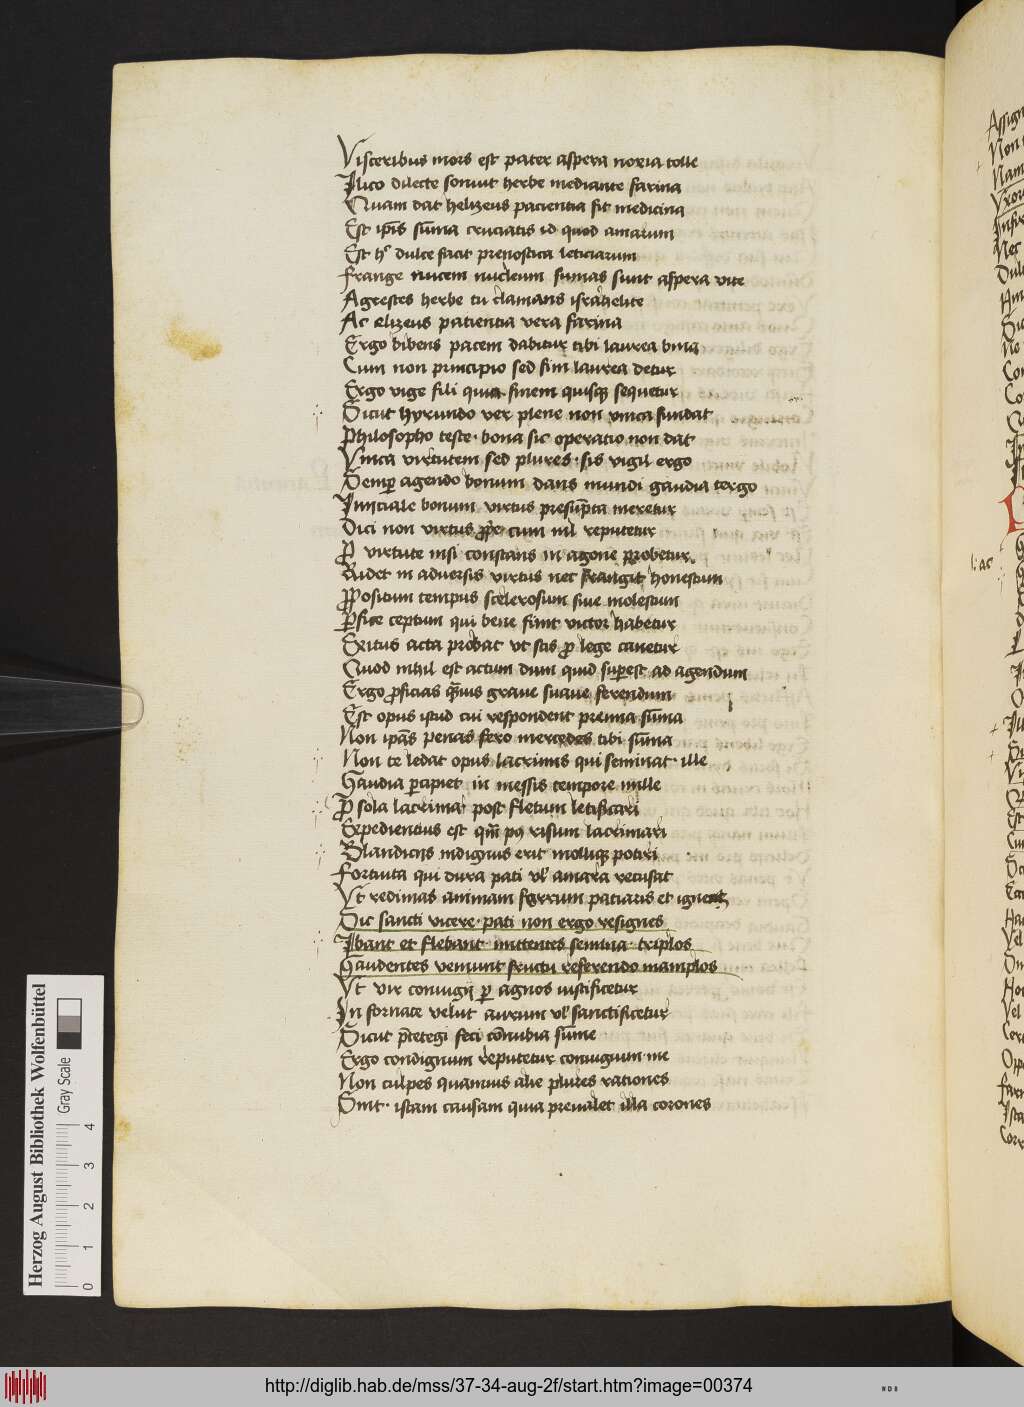 Visceribus mors est pater aspera noxia tolle
Ilico dilecte soluit herbe mediante farina
Quam dat helizeus paciencia sit medicina
Est ip̄is sūma cruciatis id quod amarum
Est hͦ dulce facit prenostica leticiarum
Frange nucem nucleum sumas sunt aspera vite
Agrestes herbe tu clamans israhelite
Ac elizeus patientia vera farina
Ergo bibens pacem dabitur tibi laurea bina
Cum non principio sed fini laurea detur
Ergo vige fili quia finem quisqꝫ sequetur
Sicut hyrundo ver plene non vnica fundat
Philosopho teste bona sic operatio non dat
Vnica virtutem sed plures sis vigil ergo
Semꝑ agendo bonum dans mundi gaudia tergo
Iniciale bonum virtus presūpta meretur
Dici non virtus ꝓpe cum nil reputetur
Ꝓ virtute nisi constans in agone probetur
Ridet in aduersis virtus nec frangit honestum
Ꝓpositum tempus scelerosum siue molestum
Ꝑfice ceptum qui bene finit victor habetur
Exitus acta probat vt scis ꝓ lege tauetur
Quod nihil est actum dum quid suꝑest ad agendum
Ergo ꝓficias qͣmuis graue suaue ferendum
Est opus istud cui respondent premia sūma
Non ip̄as penas fero mercedes tibi sūma
Non te ledat opus lacrimis qui seminat ille
Gaudia ꝑcipiet in messis tempore mille
Ꝓ sola lacrima post fletum letificari
Expedientius est qm̄ pꝰ risum lacrimari
Blandiciis indignus erit mollique potiri
Fortuita qui dura pati vl' amara recusat
Vt redimas animam ferrum patiaris et ignes
Sic sancti vicere pati non ergo resignes
Ibant et flebant mittentes semina triplos
Gaudentes veniunt fructu referendo maniplos
Vt vir coniugij ꝑ agnos iustificetur
In fornace velut aurum vl' sanctificetur
Sicut p̄tetegi feci cōnubia sūme
Ergo condignum reputetur coniugium me
Non culpes quamuis alie plures rationes
Sint istam causam quia preualet illa corones
Assign
Non
Nam
Vxor
Nec
l: ac
Herzog August Bibliothek Wolfenbüttel
Gray Scale
0 1 2 3 4
http://diglib.hab.de/mss/37-34-aug-2f/start.htm?image=00374